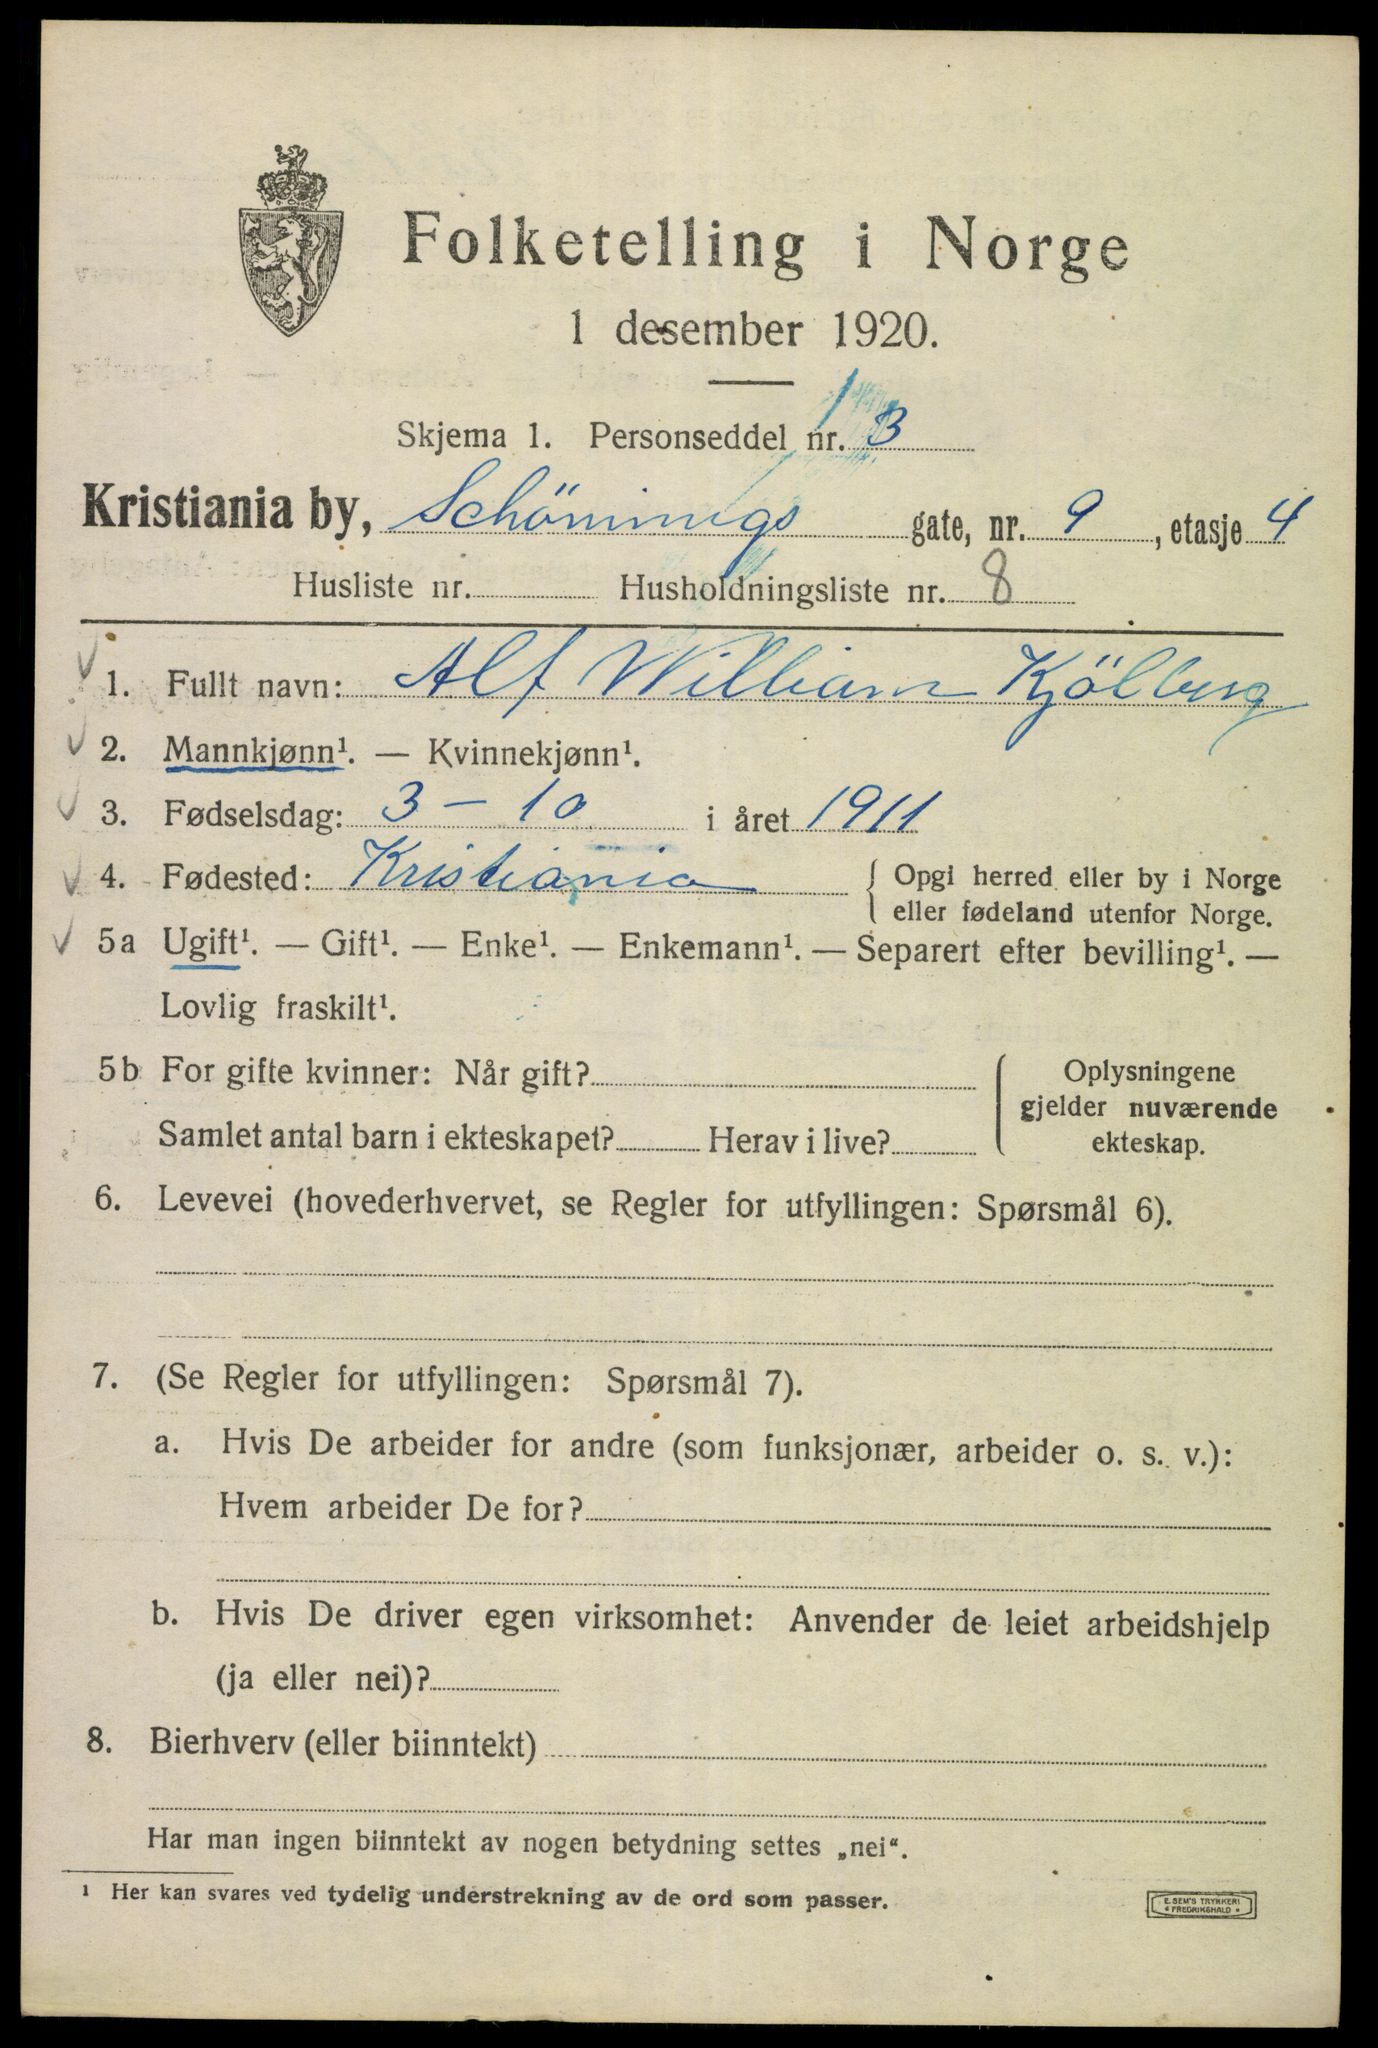 Folketelling i Norge
1 desember 1920.
Skjema 1. Personseddel nr. 3
Kristiania by, Schönnings gate, nr. 9, etasje 4
Husliste nr. Husholdningsliste nr. 8
1. Fullt navn: Alf William Kjölberg
2. Mannkjønn¹. — Kvinnekjønn¹.
3. Fødselsdag: 3 – 10 i året 1911
4. Fødested: Kristiania { Opgi herred eller by i Norge
eller fødeland utenfor Norge.
5a Ugift¹. — Gift¹. — Enke¹. — Enkemann¹. — Separert efter bevilling¹. —
Lovlig fraskilt¹.
5b For gifte kvinner: Når gift? Oplysningene
gjelder nuværende
Samlet antal barn i ekteskapet? Herav i live? ekteskap.
6. Levevei (hovederhvervet, se Regler for utfyllingen: Spørsmål 6).
7. (Se Regler for utfyllingen: Spørsmål 7).
a. Hvis De arbeider for andre (som funksjonær, arbeider o. s. v.):
Hvem arbeider De for?
b. Hvis De driver egen virksomhet: Anvender de leiet arbeidshjelp
(ja eller nei)?
8. Bierhverv (eller biinntekt)
Har man ingen biinntekt av nogen betydning settes „nei“.
¹ Her kan svares ved tydelig understrekning av de ord som passer.
E. SEM'S TRYKKERI
FREDRIKSHALD